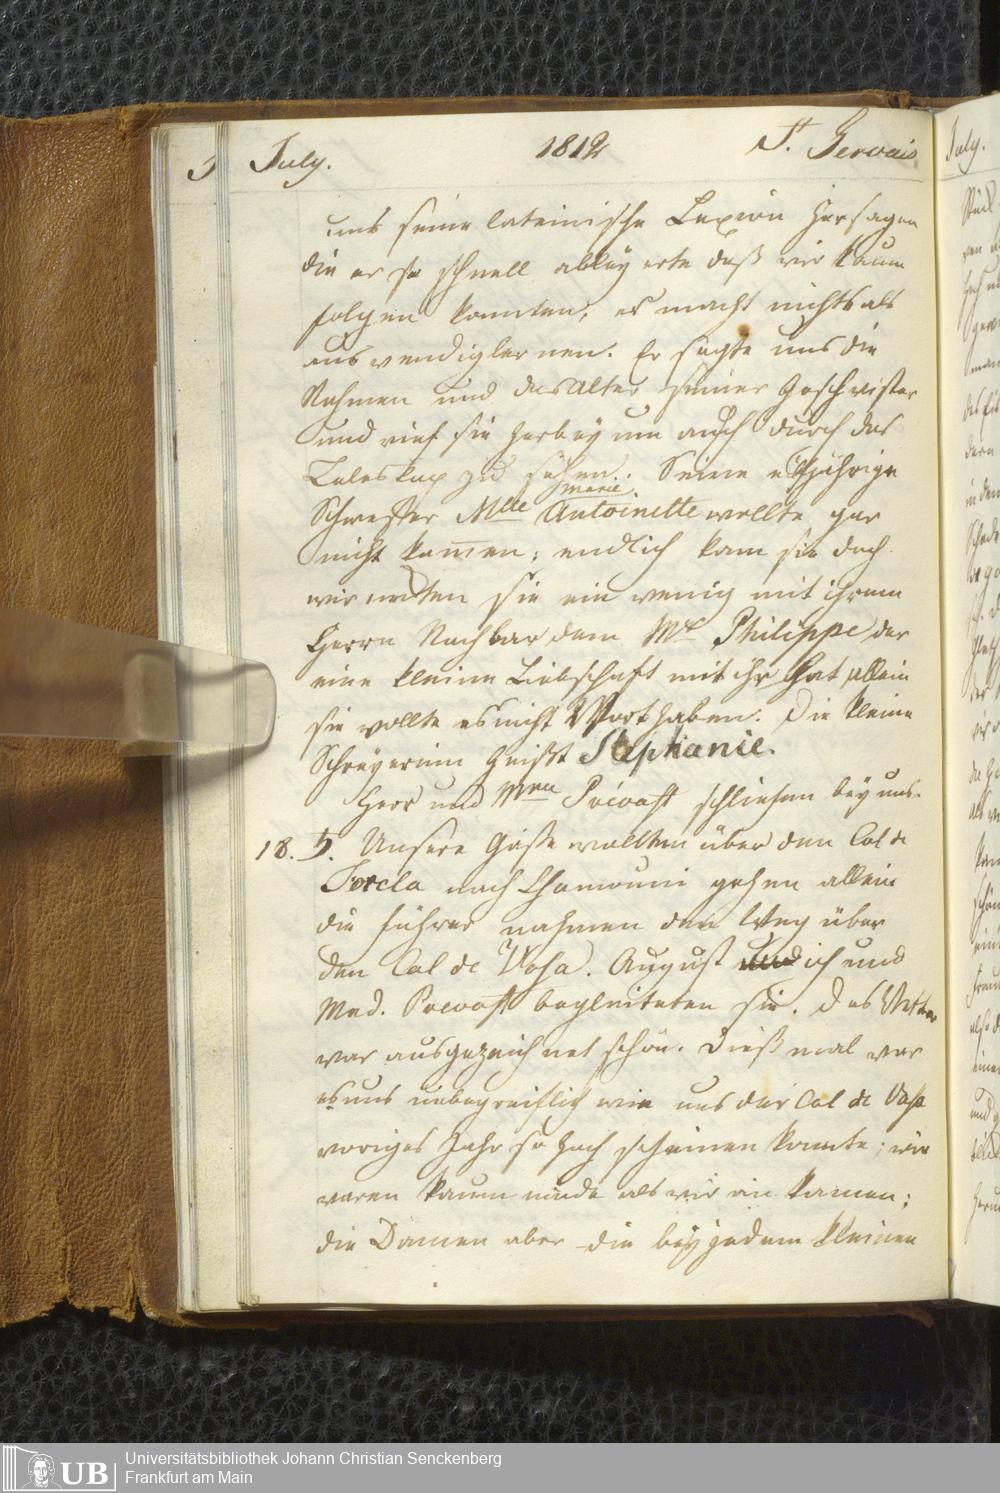 July. 1812 St. Gervais
uns seine lateinische Lexion hersagen
die er so schnell ableyerte daß wir kaum
folgen konnten, er macht nichts als
auswendiglernen. Er sagte uns die
Nahmen und das Alter seiner Geschwister
und rief sie herbey um auch durch das
Teleskop zu sehen. Seine jährige
marie
Schwester Mlle Antoinette wollte gar
nicht kommen; endlich kam sie doch
wir neckten sie ein wenig mit ihrem
Herrn Nachbar dem Mr Philippe der
eine kleine Liebschaft mit ihr hat, allein
sie wollte es nicht Wort haben. Die kleine
Schreyerinn heißt Stephanie.
Herr und Prevost schliefen bey uns.
18. ♄. Unsere Gäste wollten über den Col de
Forcla nach Chamouni gehen allein
die Führer nahmen den Weg über
den Col de Vosa. August und ich und
Mad. Prevost begleiteten sie. Das Wetter
war ausgezeichnet schön. Dießmal war
es uns unbegreiflich wie uns der Col de Vosa
voriges Jahr so hoch scheinen konnte; wir
waren kaum müde als wir an kamen;
die Damen aber die bey jedem kleinen
July.
UB
Universitätsbibliothek Johann Christian Senckenberg
Frankfurt am Main